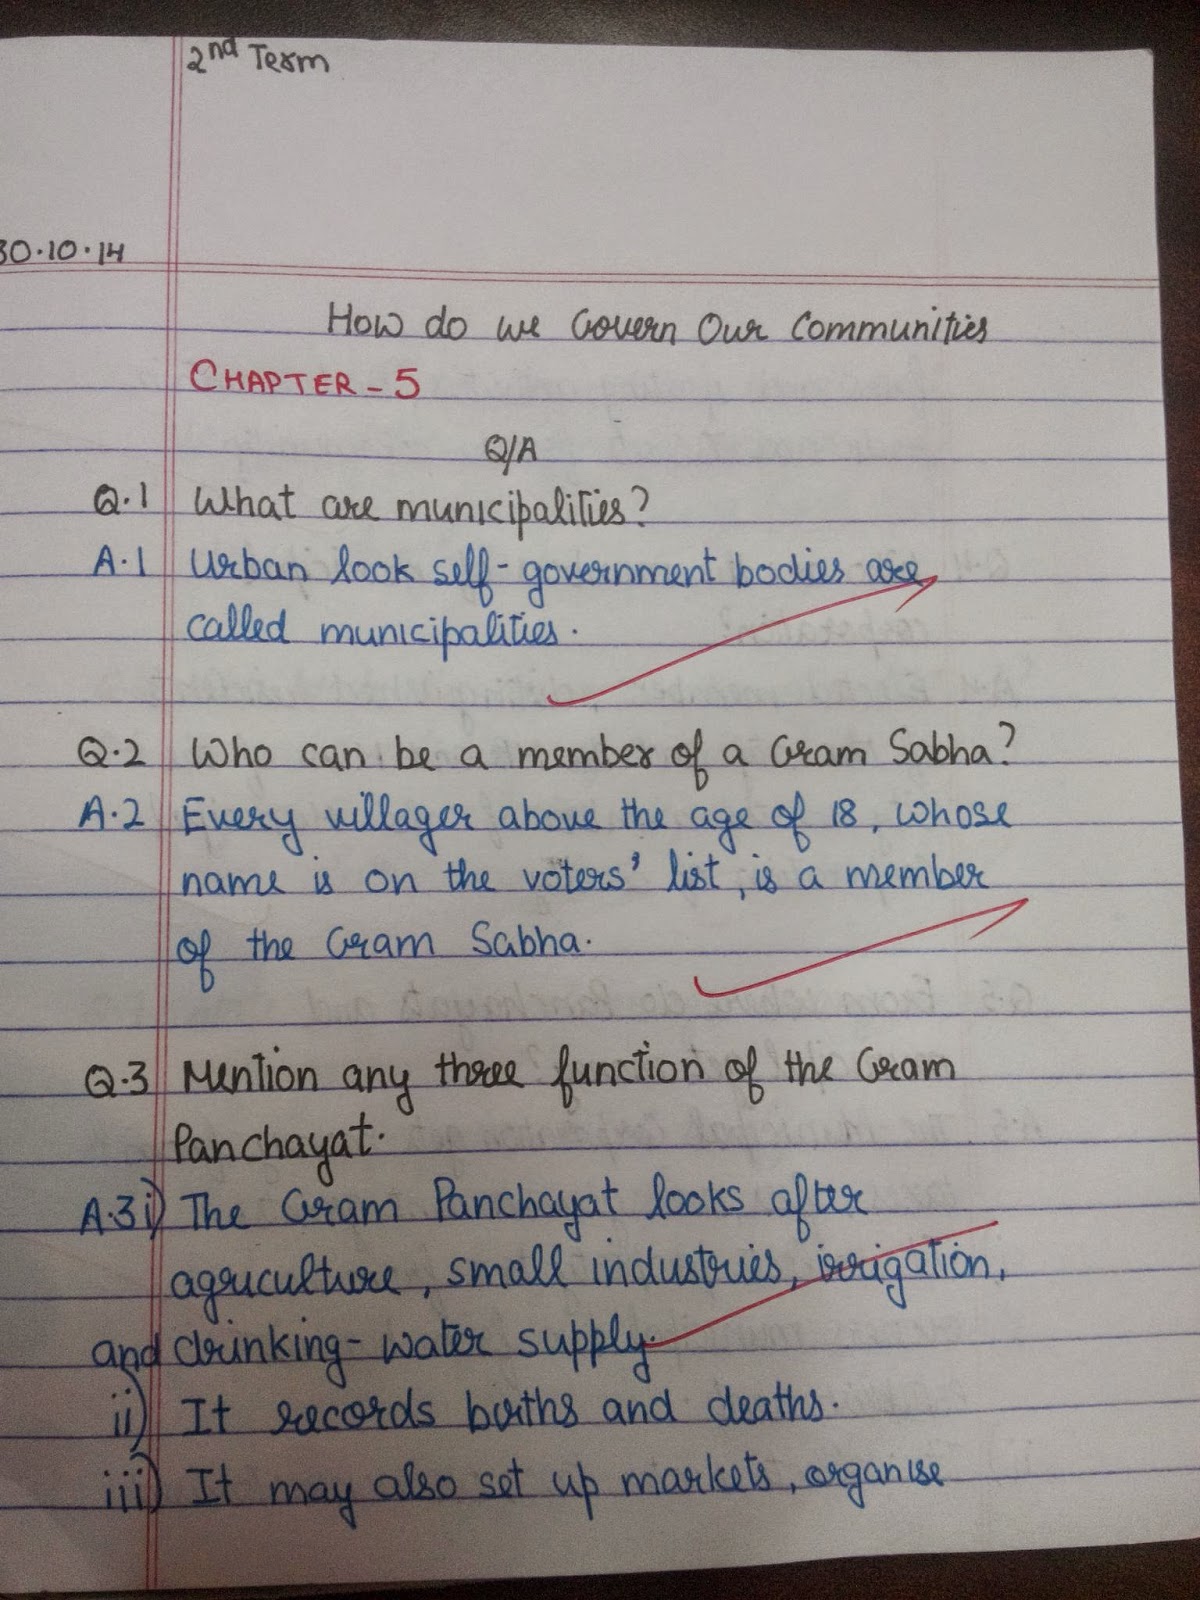 2nd Term
30.10.14
How do we Govern Our Communities
CHAPTER - 5
Q/A
Q.1 What are municipalities?
A.1 Urban look self-government bodies are
called municipalities.
Q.2 Who can be a member of a Gram Sabha?
A.2 Every villager above the age of 18, whose
name is on the voters' list, is a member
of the Gram Sabha.
Q.3 Mention any three function of the Gram
Panchayat.
A.3 i) The Gram Panchayat looks after
agruculture, small industries, irrigation,
and drinking-water supply.
ii) It records births and deaths.
iii) It may also set up markets, organise